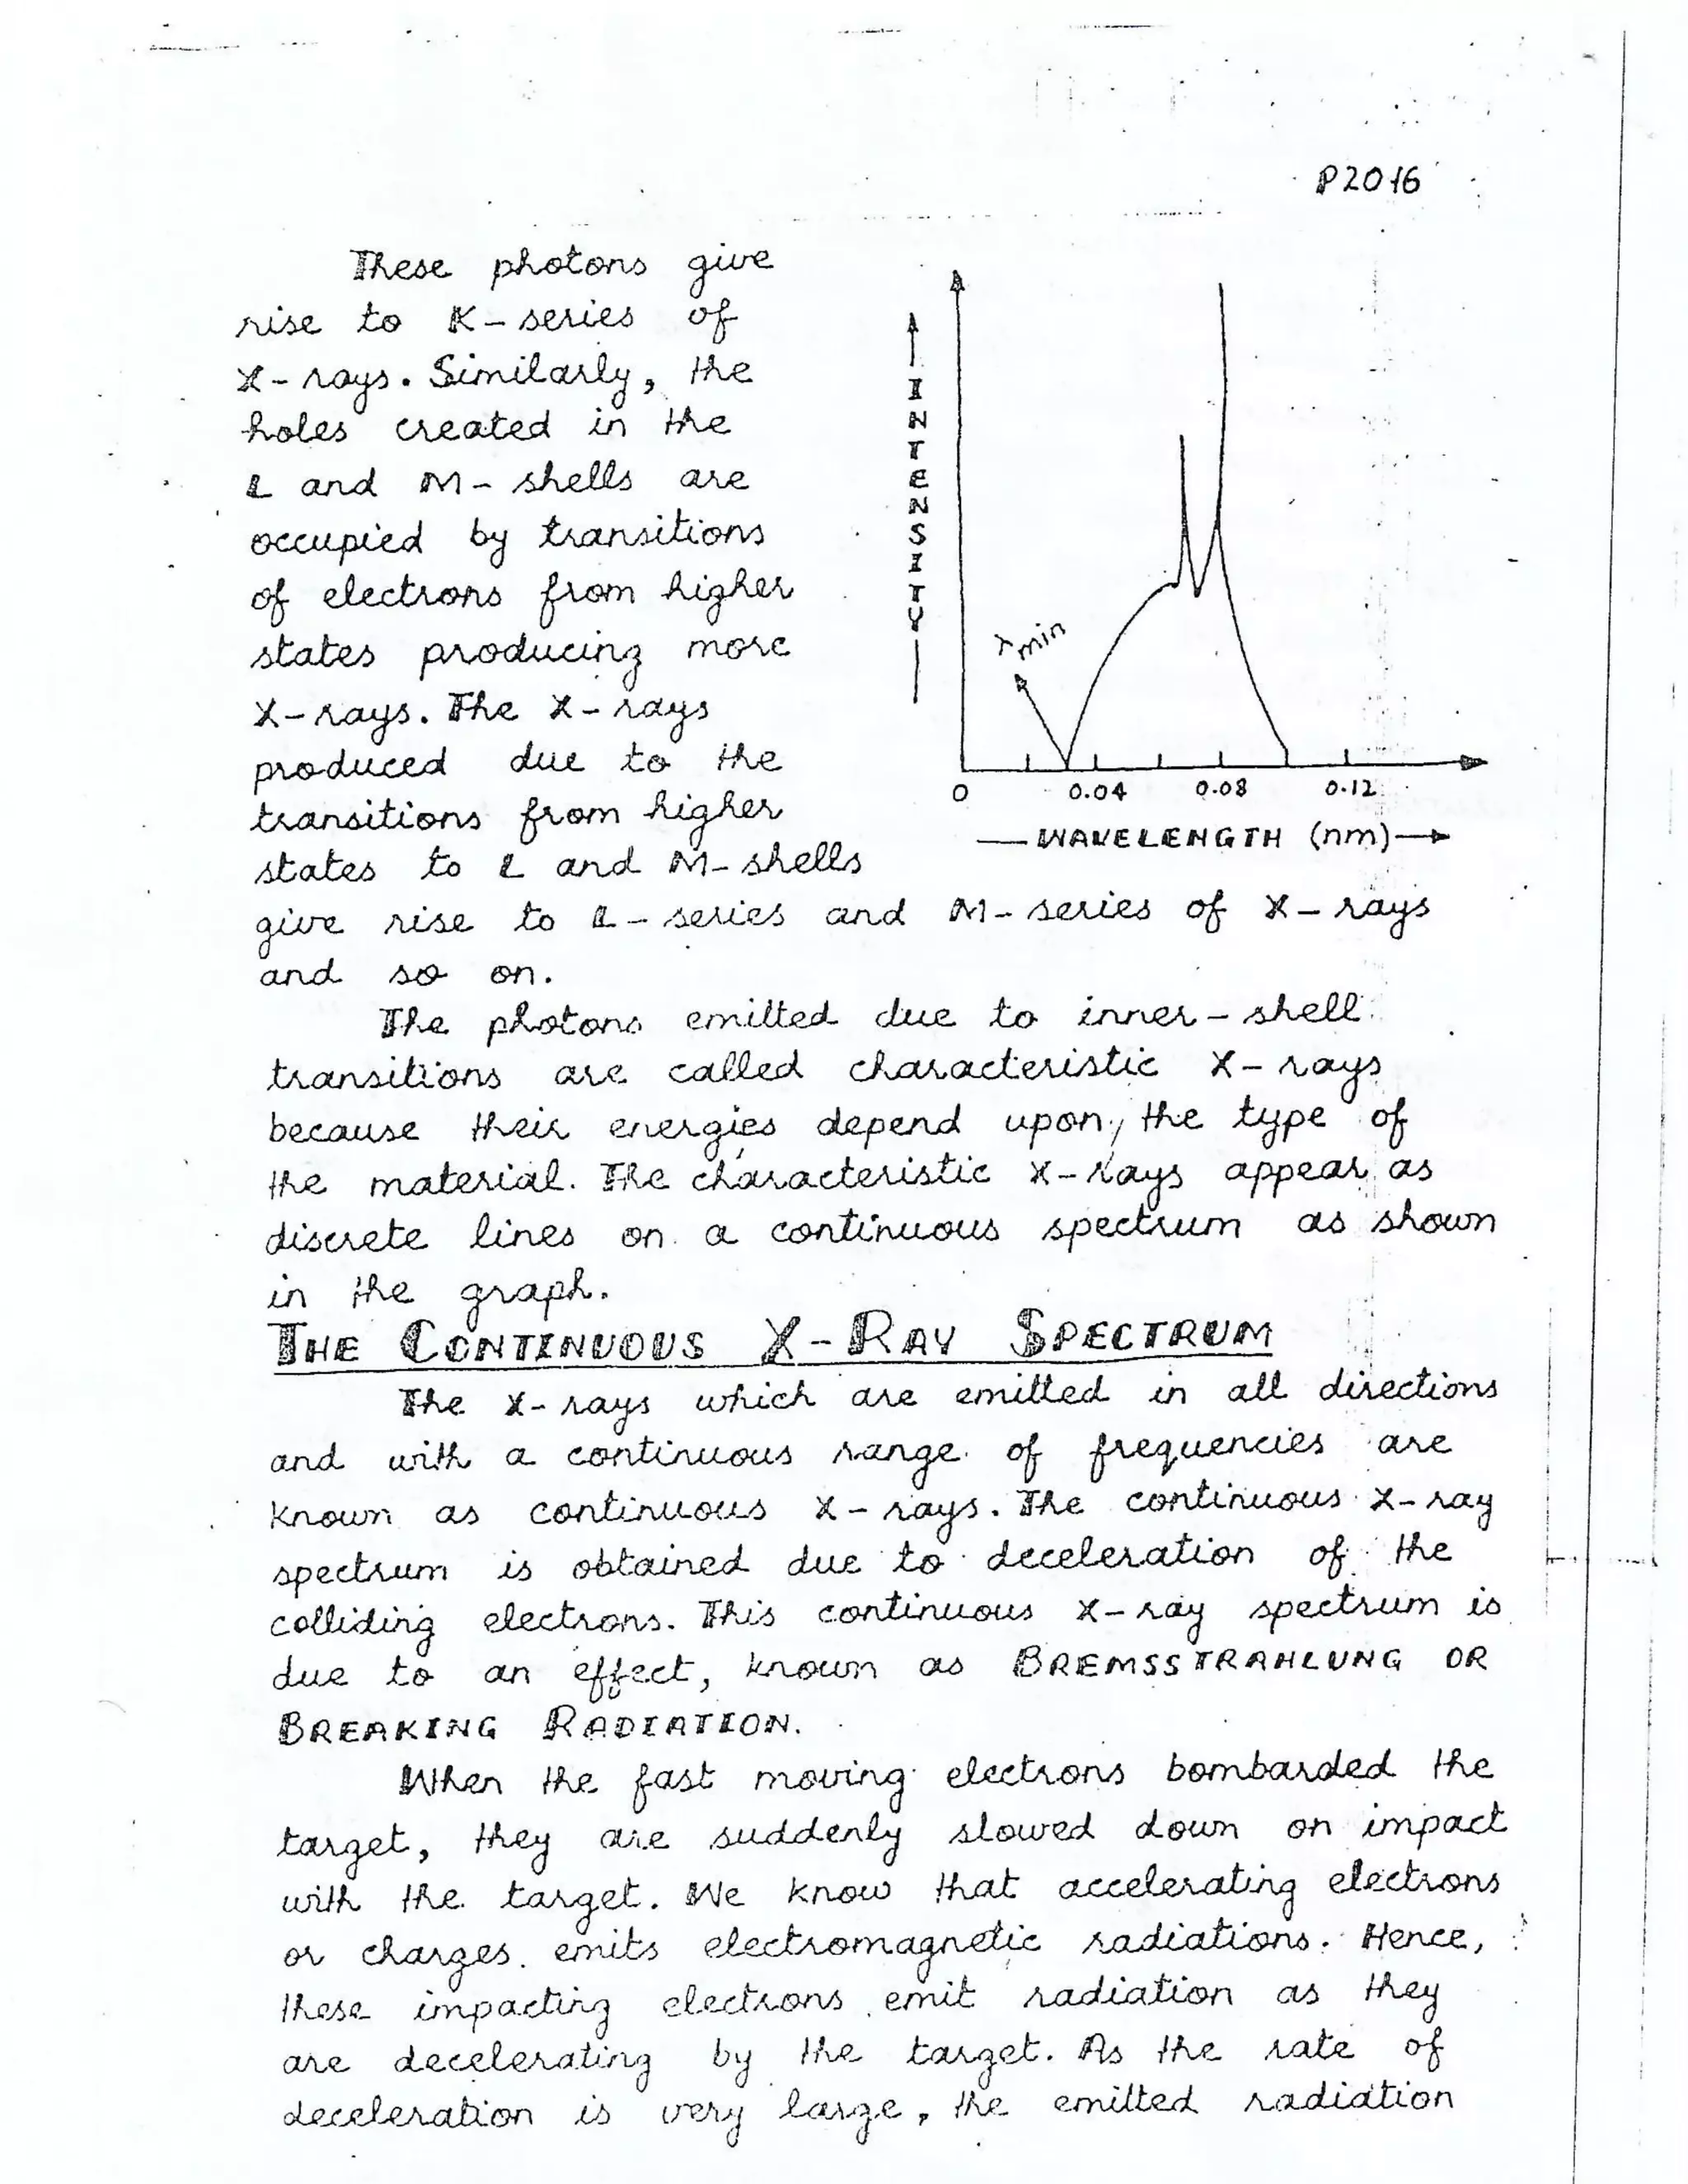 P2016
These photons give
rise to K-series of
X-rays. Similarly, the
holes created in the
L and M-shells are
occupied by transitions
of electrons from higher
states producing more
X-rays. The X-rays
produced due to the
transitions from higher
states to L and M-shells
give rise to L-series and M-series of X-rays
and so on.
INTENSITY
λmin
0 0.04 0.08 0.12
WAVELENGTH (nm)
The photons emitted due to inner-shell
transitions are called characteristic X-rays
because their energies depend upon, the type of
the material. The characteristic X-rays appear as
discrete lines on a continuous spectrum as shown
in the graph.
THE CONTINUOUS X-RAY SPECTRUM
The X-rays which are emitted in all directions
and with a continuous range of frequencies are
known as continuous X-rays. The continuous X-ray
spectrum is obtained due to deceleration of the
colliding electrons. This continuous X-ray spectrum is
due to an effect, known as BREMSSTRAHLUNG OR
BREAKING RADIATION.
When the fast moving electrons bombarded the
target, they are suddenly slowed down on impact
with the target. We know that accelerating electrons
or charges emits electromagnetic radiations. Hence,
these impacting electrons emit radiation as they
are decelerating by the target. As the rate of
deceleration is very large, the emitted radiation